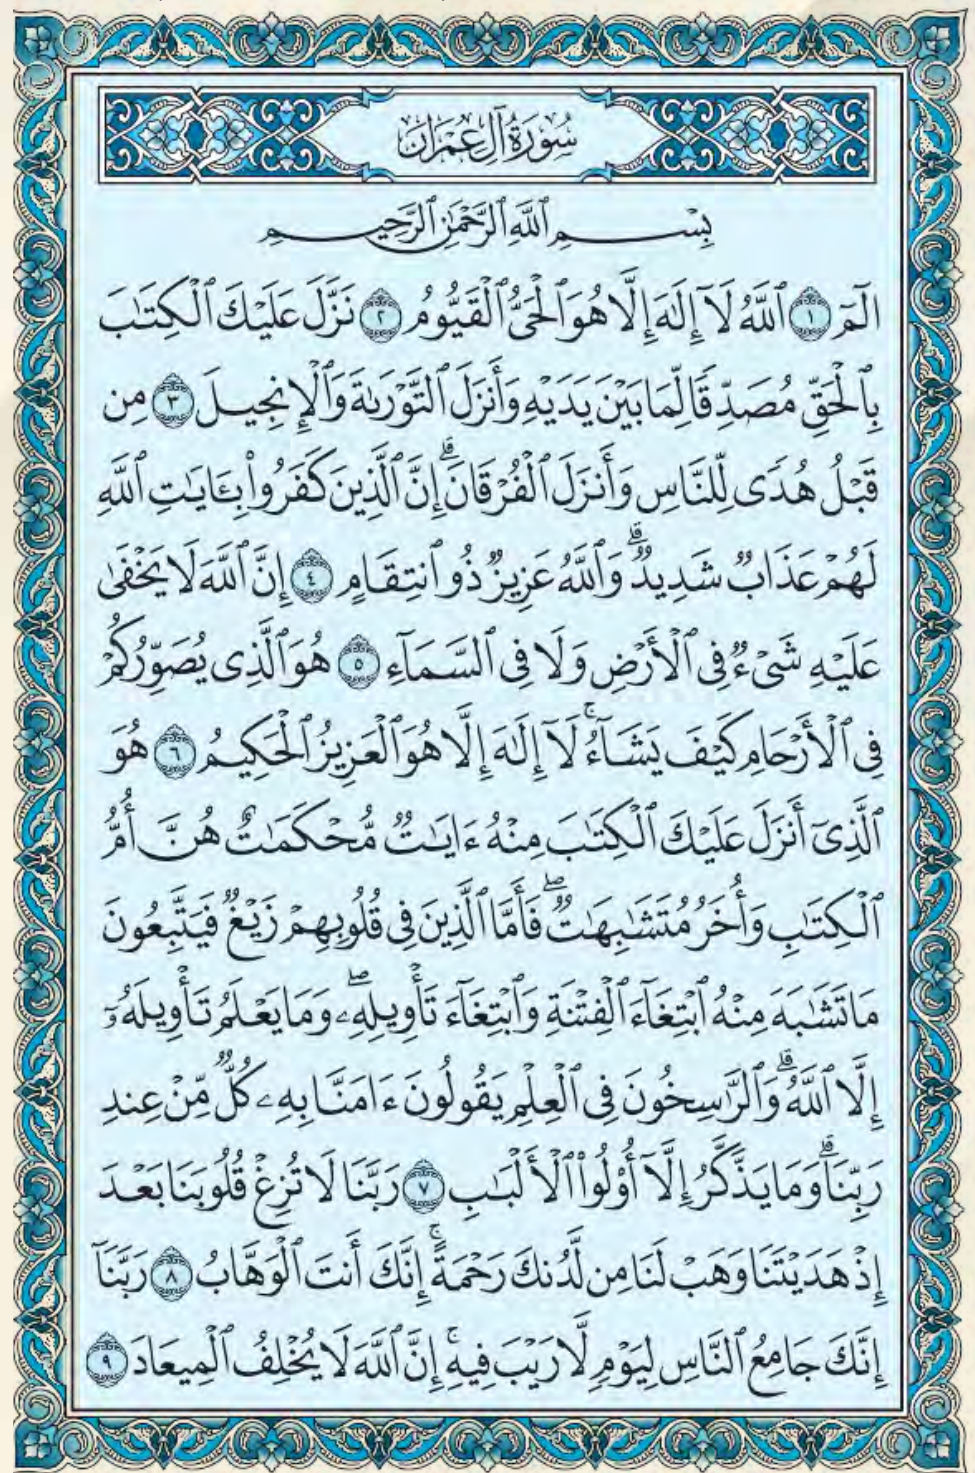 سُورَةُ آلِ عِمْرَانَ
بِسْمِ ٱللَّهِ ٱلرَّحْمَٰنِ ٱلرَّحِيمِ
الٓمٓ ١ ٱللَّهُ لَآ إِلَٰهَ إِلَّا هُوَ ٱلْحَىُّ ٱلْقَيُّومُ ٢ نَزَّلَ عَلَيْكَ ٱلْكِتَٰبَ
بِٱلْحَقِّ مُصَدِّقًا لِّمَا بَيْنَ يَدَيْهِ وَأَنزَلَ ٱلتَّوْرَىٰةَ وَٱلْإِنجِيلَ ٣ مِن
قَبْلُ هُدًى لِّلنَّاسِ وَأَنزَلَ ٱلْفُرْقَانَ ۗ إِنَّ ٱلَّذِينَ كَفَرُوا۟ بِـَٔايَٰتِ ٱللَّهِ
لَهُمْ عَذَابٌ شَدِيدٌ ۗ وَٱللَّهُ عَزِيزٌ ذُو ٱنتِقَامٍ ٤ إِنَّ ٱللَّهَ لَا يَخْفَىٰ
عَلَيْهِ شَىْءٌ فِى ٱلْأَرْضِ وَلَا فِى ٱلسَّمَآءِ ٥ هُوَ ٱلَّذِى يُصَوِّرُكُمْ
فِى ٱلْأَرْحَامِ كَيْفَ يَشَآءُ ۚ لَآ إِلَٰهَ إِلَّا هُوَ ٱلْعَزِيزُ ٱلْحَكِيمُ ٦ هُوَ
ٱلَّذِىٓ أَنزَلَ عَلَيْكَ ٱلْكِتَٰبَ مِنْهُ ءَايَٰتٌ مُّحْكَمَٰتٌ هُنَّ أُمُّ
ٱلْكِتَٰبِ وَأُخَرُ مُتَشَٰبِهَٰتٌ ۖ فَأَمَّا ٱلَّذِينَ فِى قُلُوبِهِمْ زَيْغٌ فَيَتَّبِعُونَ
مَا تَشَٰبَهَ مِنْهُ ٱبْتِغَآءَ ٱلْفِتْنَةِ وَٱبْتِغَآءَ تَأْوِيلِهِۦ ۖ وَمَا يَعْلَمُ تَأْوِيلَهُۥٓ
إِلَّا ٱللَّهُ ۗ وَٱلرَّٰسِخُونَ فِى ٱلْعِلْمِ يَقُولُونَ ءَامَنَّا بِهِۦ كُلٌّ مِّنْ عِندِ
رَبِّنَا ۗ وَمَا يَذَّكَّرُ إِلَّآ أُو۟لُوا۟ ٱلْأَلْبَٰبِ ٧ رَبَّنَا لَا تُزِغْ قُلُوبَنَا بَعْدَ
إِذْ هَدَيْتَنَا وَهَبْ لَنَا مِن لَّدُنكَ رَحْمَةً ۚ إِنَّكَ أَنتَ ٱلْوَهَّابُ ٨ رَبَّنَآ
إِنَّكَ جَامِعُ ٱلنَّاسِ لِيَوْمٍ لَّا رَيْبَ فِيهِ ۚ إِنَّ ٱللَّهَ لَا يُخْلِفُ ٱلْمِيعَادَ ٩